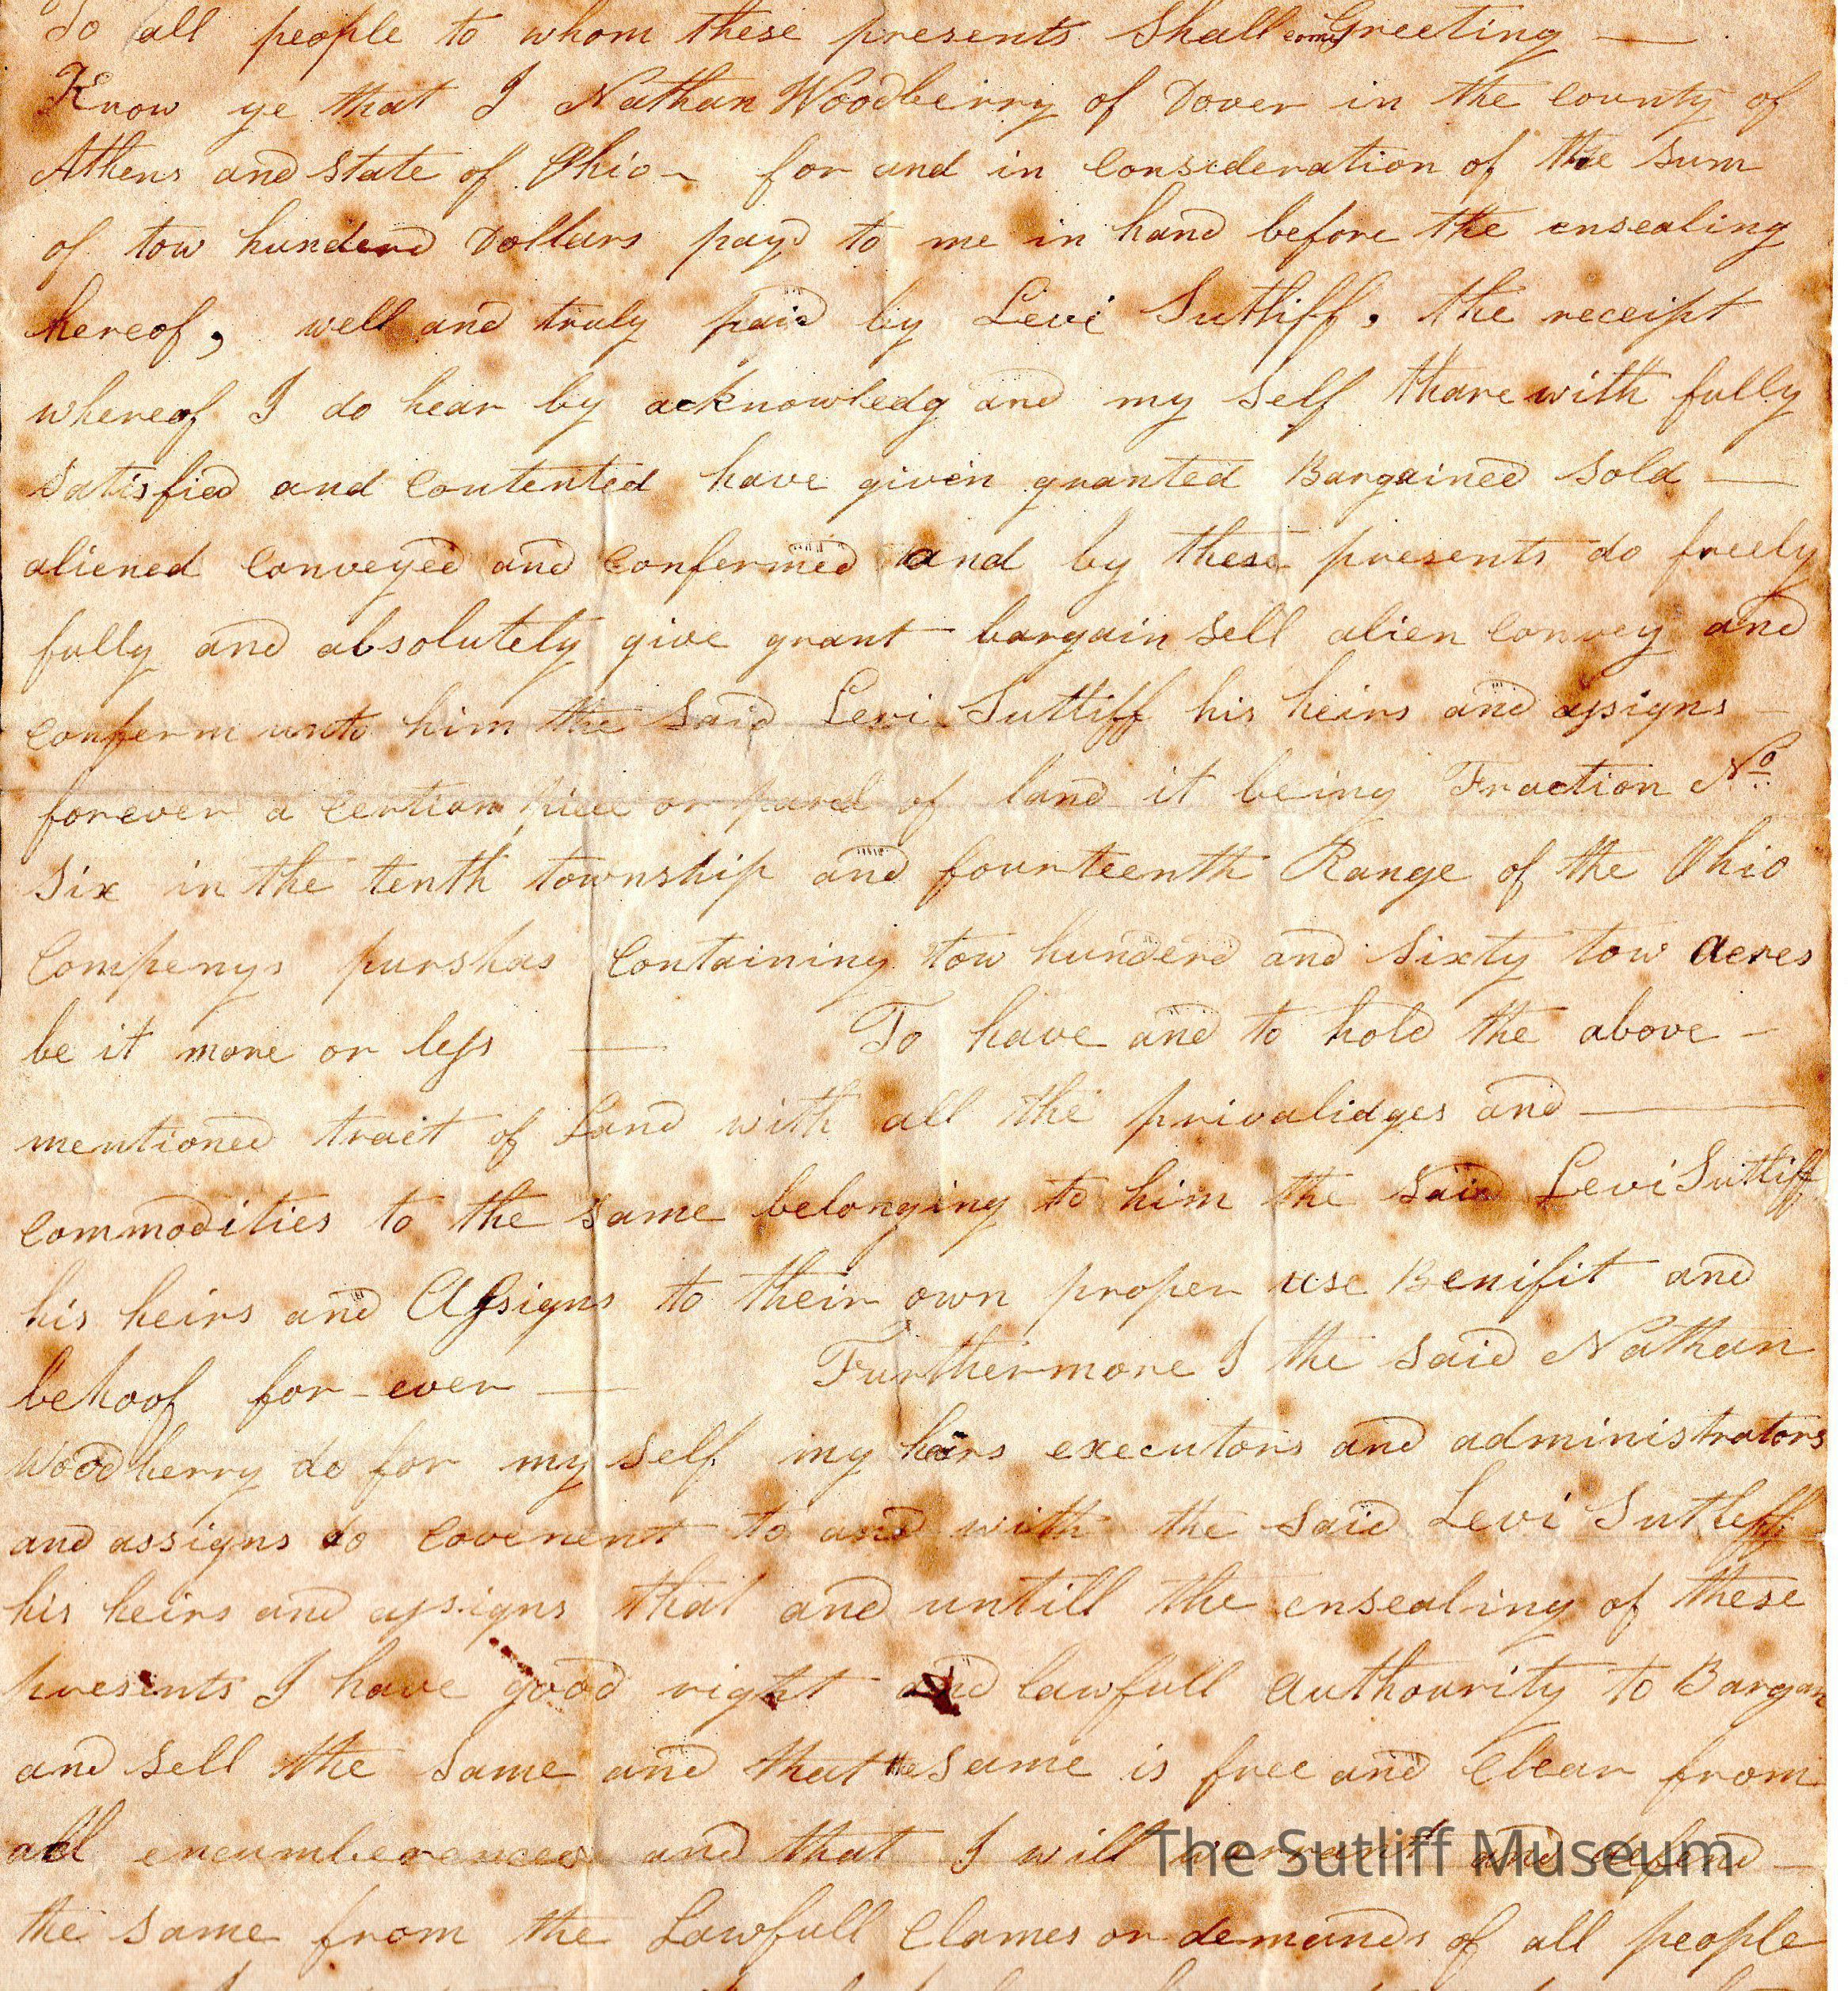 To all people to whom these presents Shall come Greeting —
Know ye that I Nathan Woodberry of Dover in the county of
Athens and state of Ohio – for and in consideration of the sum
of tow hunderd Dollars payd to me in hand before the ensealing
hereof, well and truly paid by Levi Sutliff, the receipt
whereof I do hear by acknowledg and my self thare with fully
satisfied and contented have given granted Bargained sold —
aliened conveyed and confermed and by these presents do freely
fully and absolutely give grant bargain sell alien convey and
conferm unto him the said Levi Sutliff his heirs and assigns –
forever a certian piece or parcel of land it being Fraction No.
six in the tenth township and fourteenth Range of the Ohio
Compenys purshas containing tow hunderd and sixty tow acres
be it more or less — To have and to hold the above –
mentioned tract of Land with all the privalidges and —
commodities to the same belonging to him the said Levi Sutliff
his heirs and Assigns to their own proper use Benifit and
behoof for-ever — Furthermore I the said Nathan
Woodberry do for my self my heirs executors and administrators
and assigns do covenent to and with the said Levi Sutleff
his heirs and assigns that and untill the ensealing of these
presents I have good right and lawfull authourity to Bargan
and sell the same and that the same is free and clear from
all encumberances and that I will warrant and defend –
the same from the Lawfull Clames or demands of all people
The Sutliff Museum